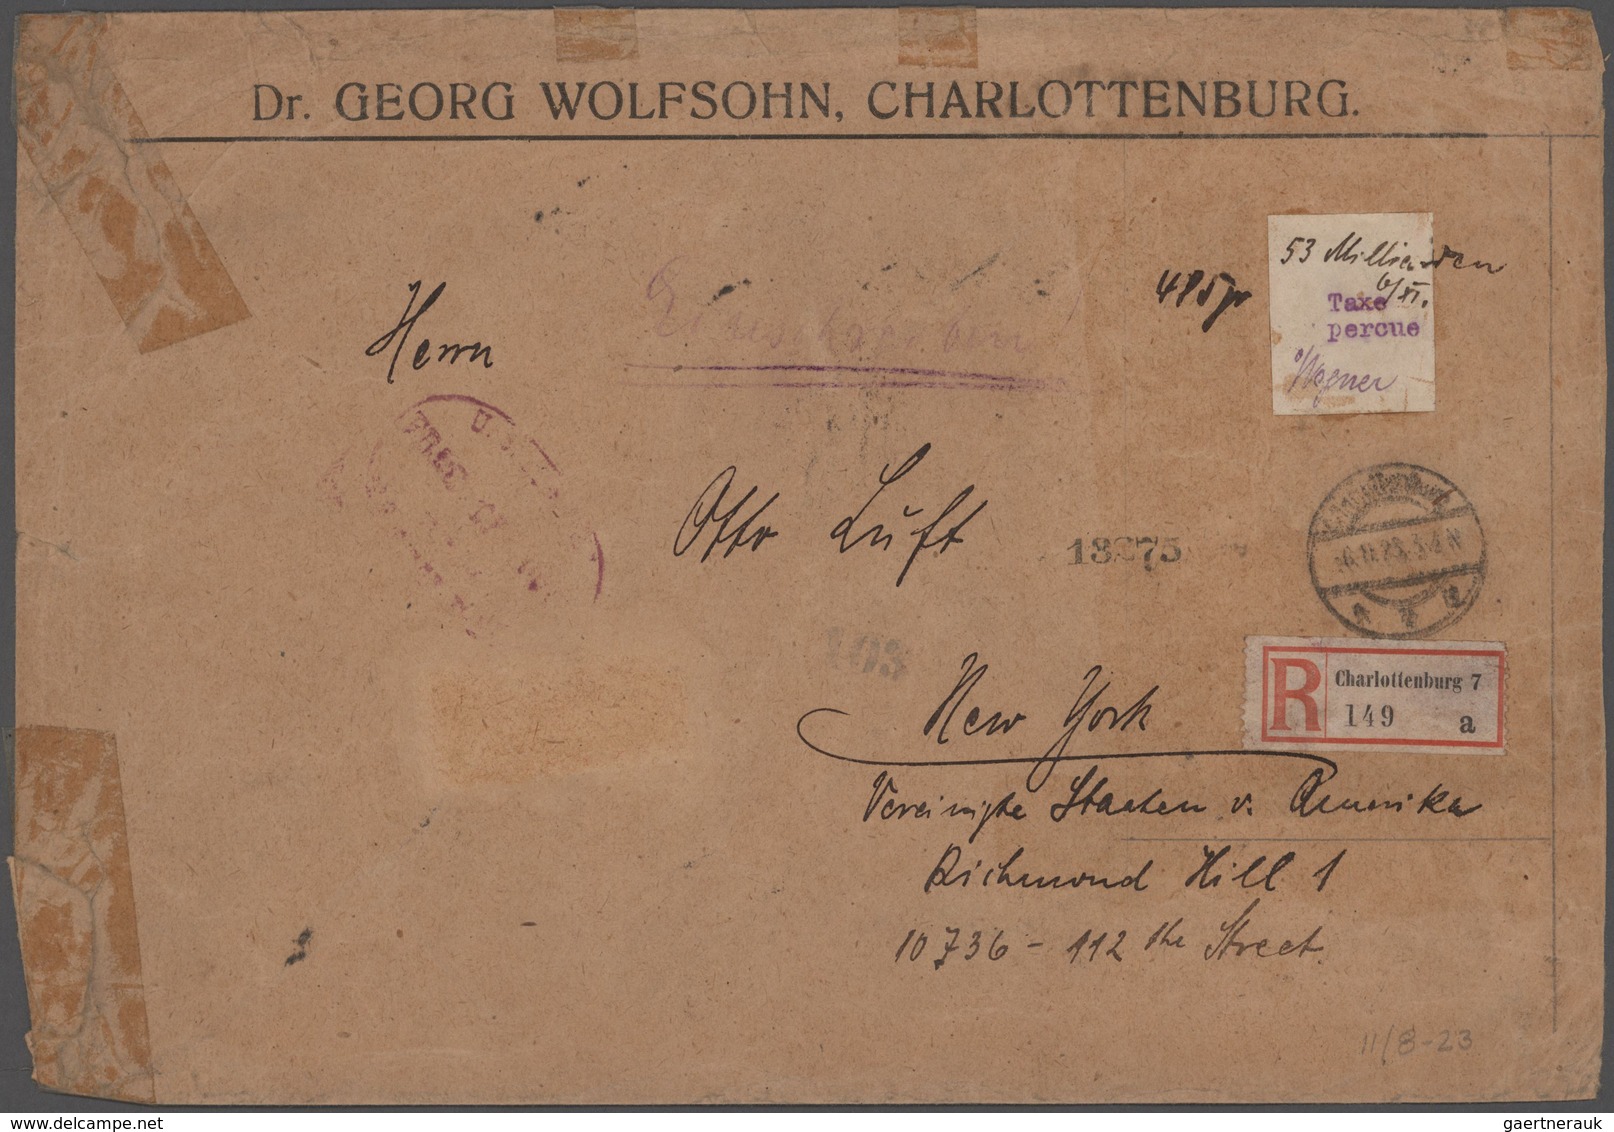 Dr. GEORG WOLFSOHN, CHARLOTTENBURG.
53 Milliarden
6/XI.
Taxe
percue
Wegner
485 gr
Einschreiben
Herrn
Otto Luft
13275
103
6.11.23.
R Charlottenburg 7
149 a
New York
Vereinigte Staaten v. Amerika
Richmond Hill 1
10736 - 112 the Street.
11/8-23
gaertnerauk @ delcampe.net